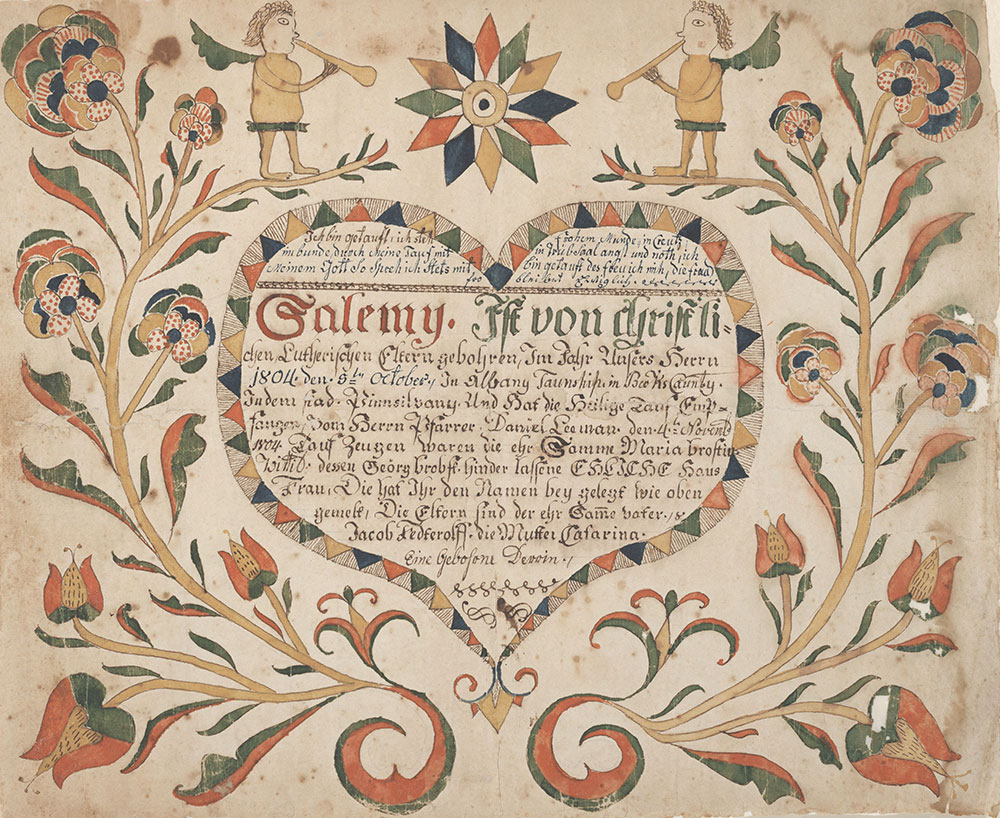 Ich bin getauft ich steh
im bunde, durch Meine tauf mit
Meinem Gott so sprech ich stets mit
frohem Munde, in Creutz
in Trübsaal angst und noth, ich
bin getauft des freu ich mich, die freud
bleibet ewiglich
Salemy. Ist von christli-
chen, Lutherischen Eltern gebohren, Im Jahr Unsers Herrn
1804 den 5ten October, In Albany Taunship. in Berks Caunty.
In dem stad. Pinnsilvany. Und Hat die Heilige Tauf Emp-
fangen, Vom Herrn Pfarrer. Daniel Leeman. den 4th Novemb
1804 Tauf Zeugen waren die ehr Samme Maria brostin
Wittib. dessen Georg brobst. hinder lassne EHLICHE Haus
Frau, Die hat Ihr den Namen bey gelegt wie oben
gemelt, Die Eltern sind der ehr Same vater.
Jacob Federolff. die Mutter Catarina.
Eine Gebohrne